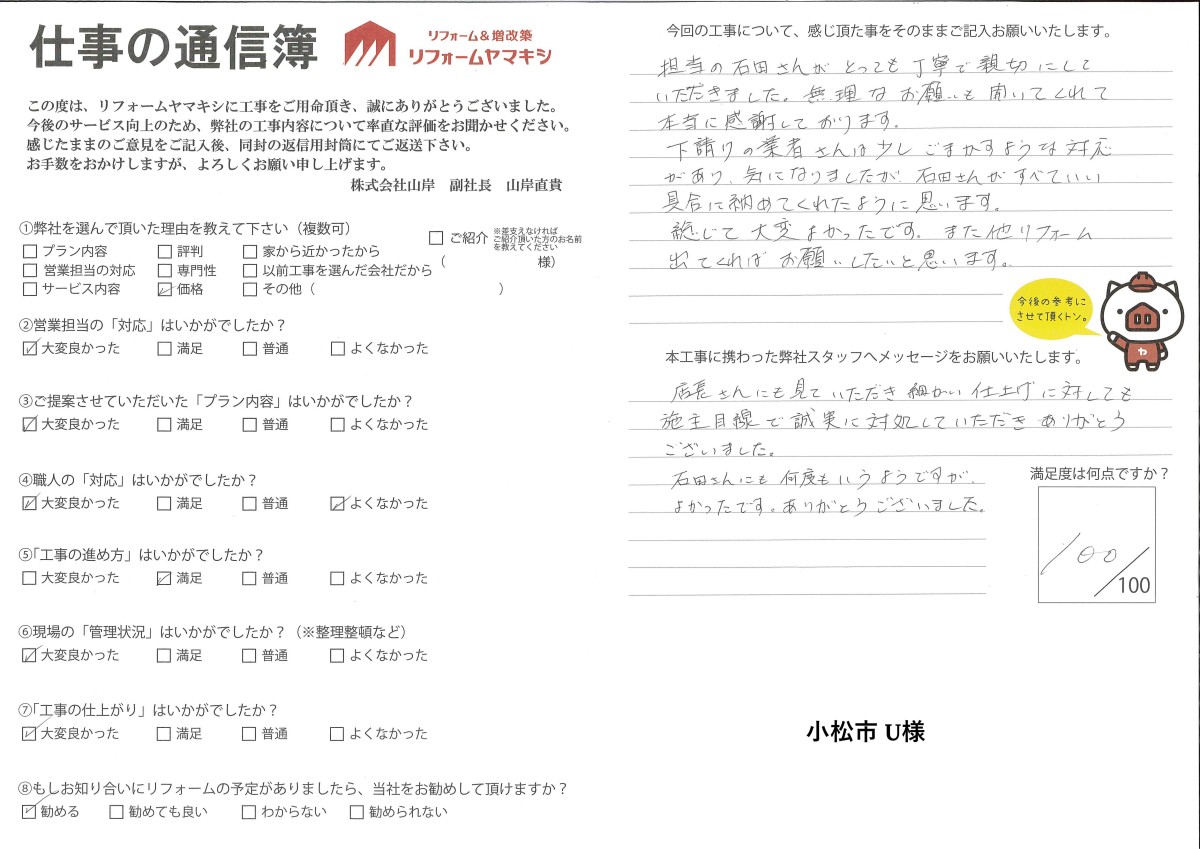 仕事の通信簿
リフォーム&増改築
リフォームヤマキシ
この度は、リフォームヤマキシに工事をご用命頂き、誠にありがとうございました。
今後のサービス向上のため、弊社の工事内容について率直な評価をお聞かせください。
感じたままのご意見をご記入後、同封の返信用封筒にてご返送下さい。
お手数をおかけしますが、よろしくお願い申し上げます。
株式会社山岸 副社長 山岸直貴
①弊社を選んで頂いた理由を教えて下さい（複数可）
□ プラン内容 □ 評判 □ 家から近かったから □ ご紹介 ※差支えなければ
ご紹介頂いた方のお名前
を教えてください
□ 営業担当の対応 □ 専門性 □ 以前工事を選んだ会社だから （ 様）
□ サービス内容 ☑ 価格 □ その他（ ）
②営業担当の「対応」はいかがでしたか？
☑ 大変良かった □ 満足 □ 普通 □ よくなかった
③ご提案させていただいた「プラン内容」はいかがでしたか？
☑ 大変良かった □ 満足 □ 普通 □ よくなかった
④職人の「対応」はいかがでしたか？
☑ 大変良かった □ 満足 □ 普通 ☑ よくなかった
⑤「工事の進め方」はいかがでしたか？
□ 大変良かった ☑ 満足 □ 普通 □ よくなかった
⑥現場の「管理状況」はいかがでしたか？（※整理整頓など）
☑ 大変良かった □ 満足 □ 普通 □ よくなかった
⑦「工事の仕上がり」はいかがでしたか？
☑ 大変良かった □ 満足 □ 普通 □ よくなかった
⑧もしお知り合いにリフォームの予定がありましたら、当社をお勧めして頂けますか？
☑ 勧める □ 勧めても良い □ わからない □ 勧められない
今回の工事について、感じ頂た事をそのままご記入お願いいたします。
担当の石田さんがとっても丁寧で親切にして
いただきました。無理なお願いも聞いてくれて
本当に感謝しております。
下請けの業者さんは少しごまかすような対応
があり、気になりましたが、石田さんがすべていい
具合に納めてくれたように思います。
総じて大変よかったです。また他リフォーム
出てくればお願いしたいと思います。
今後の参考に
させて頂くトン。
ヤ
本工事に携わった弊社スタッフへメッセージをお願いいたします。
店長さんにも見ていただき細かい仕上げに対しても
施主目線で誠実に対処していただきありがとう
ございました。
石田さんにも何度もいうようですが、
よかったです。ありがとうございました。
満足度は何点ですか？
100/100
小松市 U様